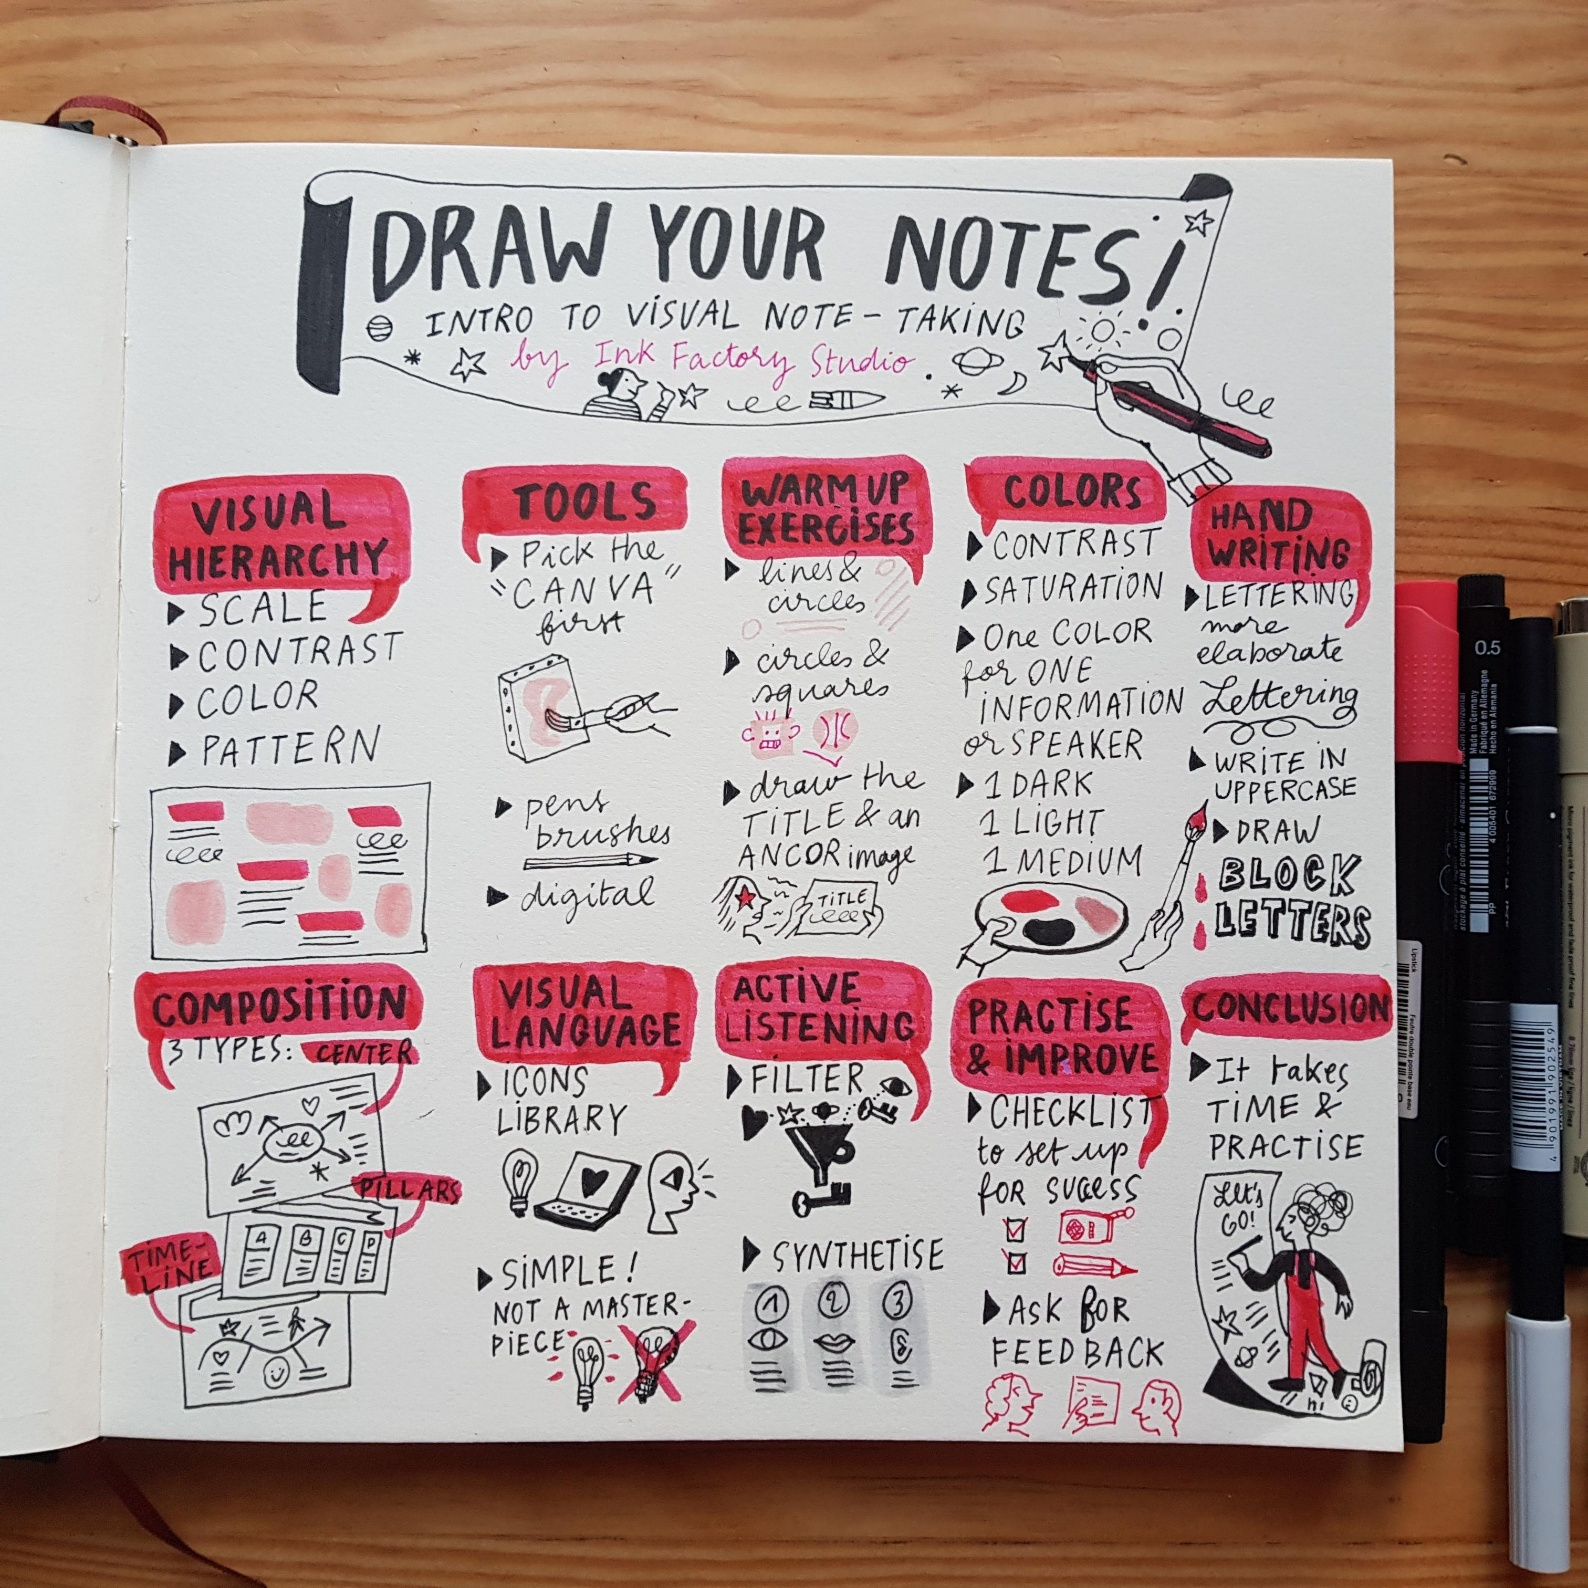 DRAW YOUR NOTES!
INTRO TO VISUAL NOTE-TAKING
by Ink Factory Studio
VISUAL
HIERARCHY
SCALE
CONTRAST
COLOR
PATTERN
TOOLS
Pick the
"CANVA"
first
pens
brushes
digital
WARM UP
EXERCISES
lines &
circles
circles &
squares
draw the
TITLE & an
ANCOR image
TITLE
COLORS
CONTRAST
SATURATION
One COLOR
for ONE
INFORMATION
or SPEAKER
1 DARK
1 LIGHT
1 MEDIUM
HAND
WRITING
LETTERING
more
elaborate
Lettering
WRITE IN
UPPERCASE
DRAW
BLOCK
LETTERS
COMPOSITION
3 TYPES: CENTER
PILLARS
A B C D
TIME-
LINE
VISUAL
LANGUAGE
ICONS
LIBRARY
SIMPLE!
NOT A MASTER-
PIECE
ACTIVE
LISTENING
FILTER
SYNTHETISE
1 2 3
PRACTISE
& IMPROVE
CHECKLIST
to set up
FOR SUCESS
ASK FOR
FEEDBACK
CONCLUSION
It takes
TIME &
PRACTISE
Let's
GO!
hi
0.5
Made in Germany
Fabriqué en Allemagne
Hecho en Alemania
4 005401 672909
PP
Lipstick
4 901991 902549